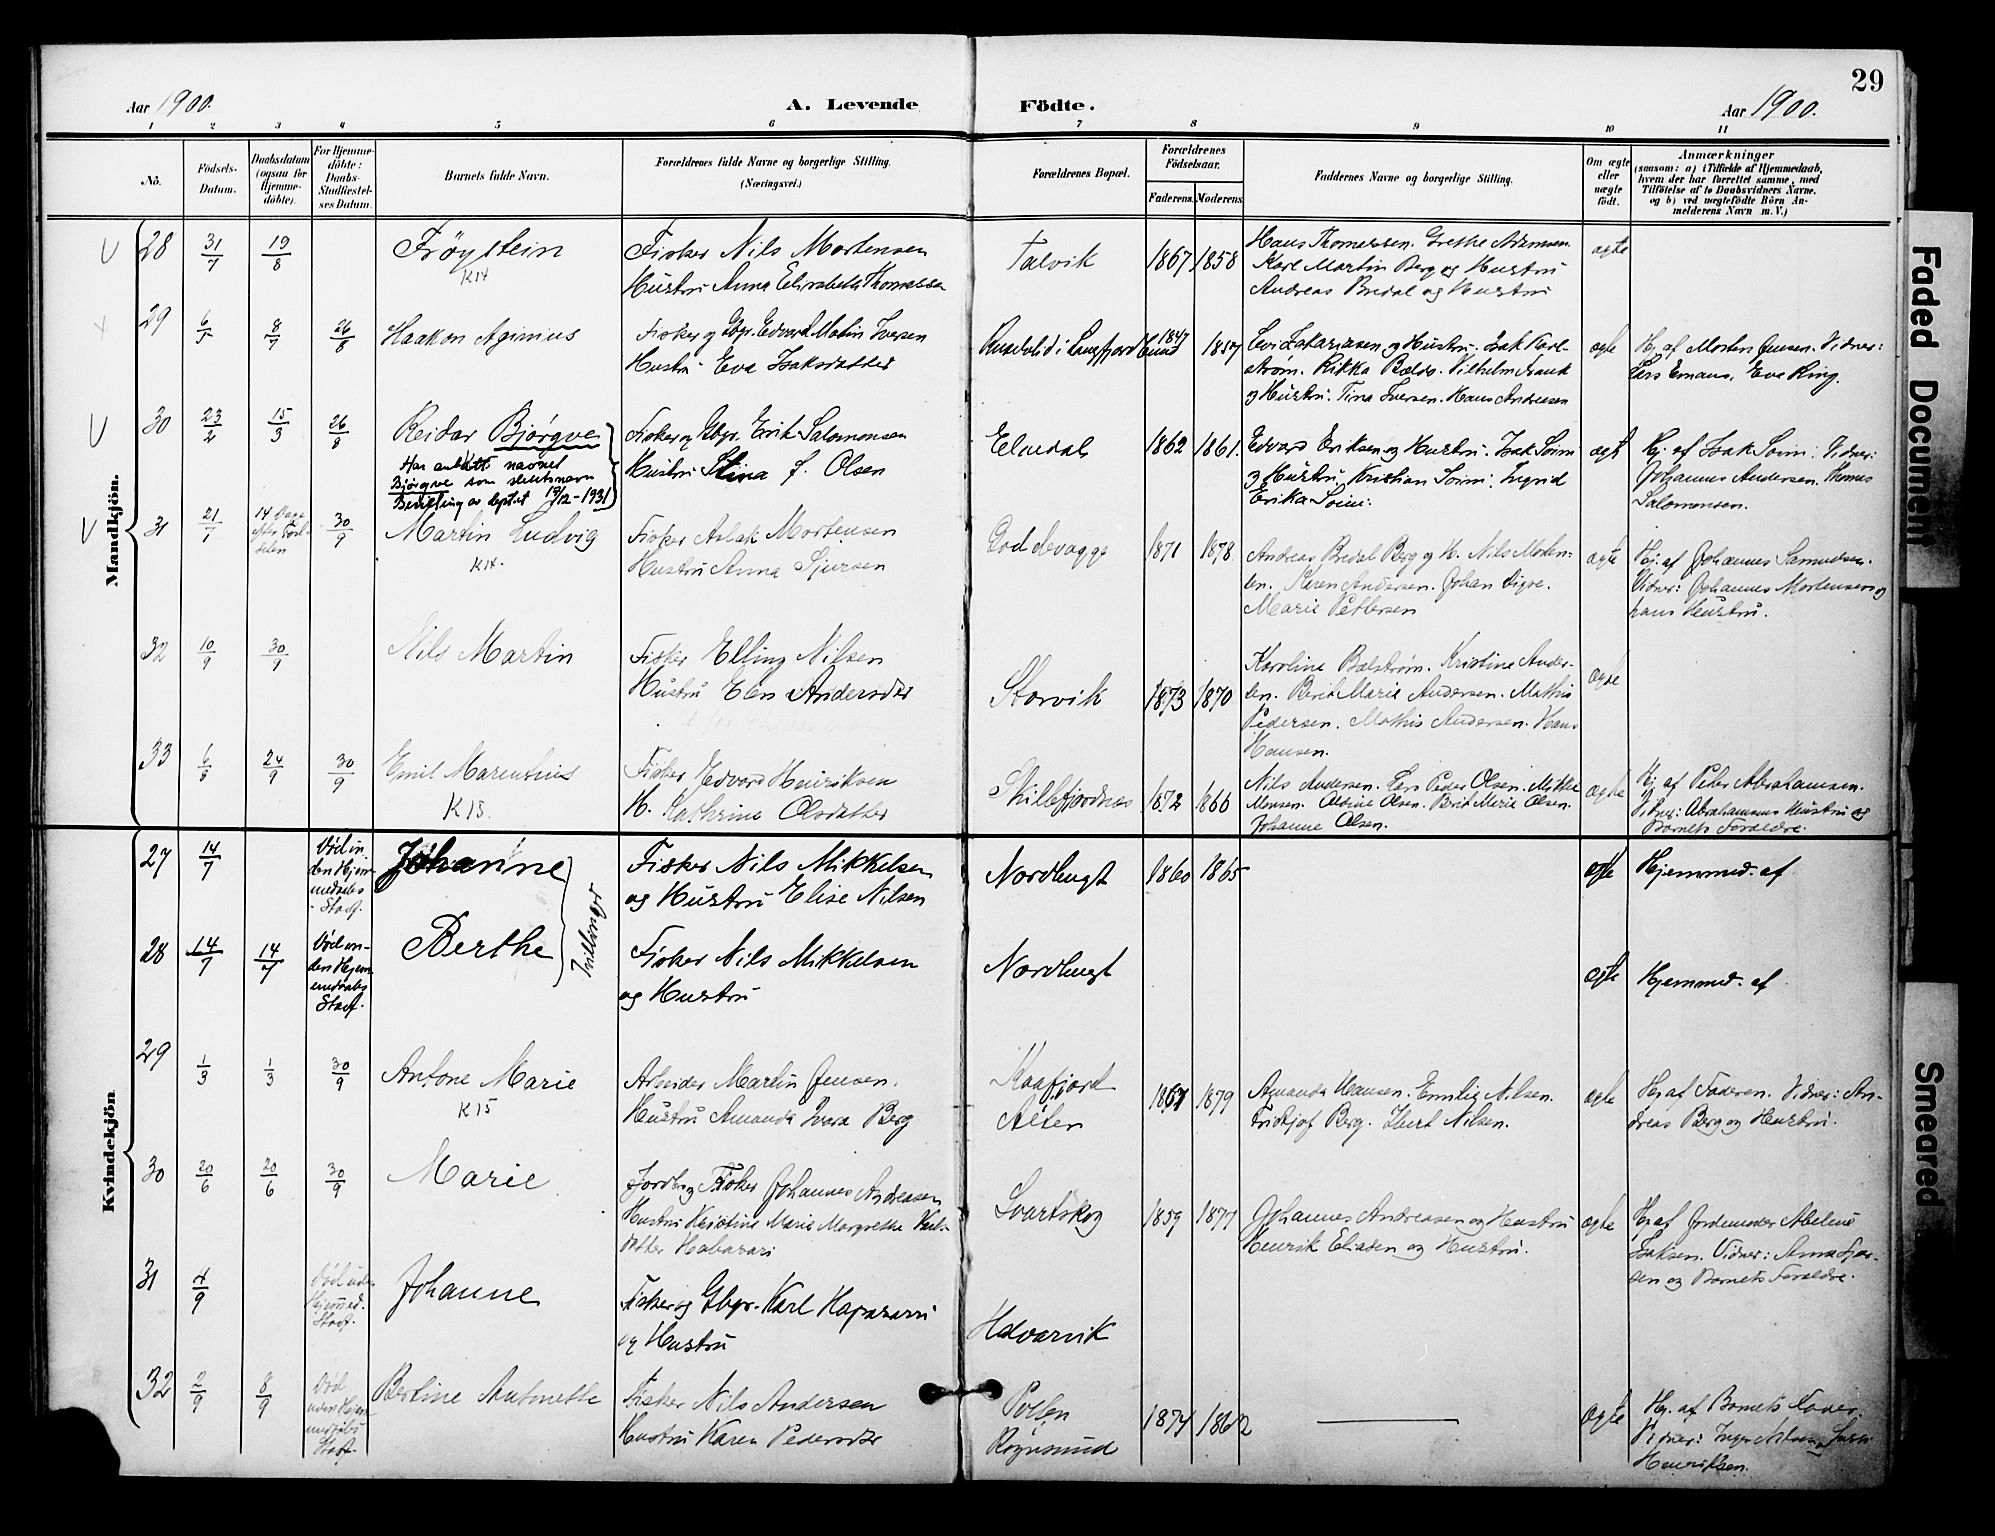 29
Aar 1900.
A. Levende Födte.
Aar 1900.
1 2 3 4 5 6 7 8 9 10 11
No.
Födsels-
Datum.
Daabsdatum
(ogsaa for
Hjemme-
döbte).
For Hjemme-
döbte:
Daabs-
Stadfæstel-
ses Datum.
Barnets fulde Navn.
Forældrenes fulde Navne og borgerlige Stilling.
(Næringsvei.)
Forældrenes Bopæl.
Forældrenes
Födselsaar.
Faderens. Moderens.
Faddernes Navne og borgerlige Stilling.
Om ægte
eller
uægte
födt.
Anmærkninger
(saasom: a) i Tilfælde af Hjemmedaab,
hvem der har forrettet samme, med
Tilföielse af to Daabsvidners Navne,
og b) ved uægtefödte Börn An-
melderens Navn m. V.)
Mandkjön.
28 31/7 19/8
Fröystein
K14
Fisker Nils Mortensen
Hustru Anna Elisabeth Thomassen
Talvik
1867 1858
Hans Thomassen. Grethe
Karl Martin Berg og Hustru
Andreas Bredal og Hustru
ægte
29 6/5 8/7 26/8
Haakon Aginius
Fisker og Gbgr. Edvard Matin Iversen
Hustru Eva Isaksdatter
i Langfjord
1847 1857
Levi Zakariasen og Hustru. Isak Karl-
strøm. Rikka Vilhelm
og Hustru. Tina Iversen. Hans Andreasen
ægte
Hj. af Morten Jensen. Vidner:
Lars Emaus, Eva Ring.
30 23/2 15/3 26/8
Reidar Bjørgve
Har antatt navnet
Bjørgve som slektsnavn
Bevilling av dept.et 19/12-1931
Fisker og Gbgr. Erik Salomonsen
Hustru Stina f. Olsen
Elvedal
1862 1861.
Edvard Eriksen og Hustru. Isak Soini
og Hustru, Kristian Soini. Ingrid
Erika Soini.
ægte
Hj. af Isak Soini. Vidner:
Johannes Andersen. Thomas
Salomonsen.
31 21/7 14 Dage
efter Föd-
selen 30/9
Martin Ludvig
K14.
Fisker Aslak Mortensen
Hustru Anna Sjursen
1871 1878.
Andreas Bredal Berg og H. Nils Morten-
sen. Karen Andersen. Johan Sigva.
Marie Pettersen
ægte
Hj. af Johannes Samuelsen.
Vidner: Johannes Mortensen og
hans Hustru.
32 10/9 30/9
Nils Martin
Fisker Elling Nilsen
Hustru Elen Andersdtr
Storvik
1873 1870
Karoline Balstrøm. Kristine Ander-
sen. Berit Marie Andersen. Mathis
Pedersen. Mathis Andersen. Hans
Hansen.
ægte
33 6/8 24/9 30/9
Emil Marentius
K15.
Fisker Edvard Henriksen
H. Kathrine Olsdatter
Skillefjordnæs
1872 1866
Nils Andersen. Lars Peder Olsen. Mikkel
Monsen. Oldine Olsen. Berit Marie Olsen.
Johanne Olsen.
ægte
Hj. af Peter Abrahamsen.
Vidner: Abrahamsens Hustru og
Barnets Forældre.
Kvindekjön
27 14/7
Död in-
den Hjem-
medaabs
Stadf.
Johanne
Tvillinger
Fisker Nils Mikkelsen
og Hustru Elise Nilsen
Nordbugt
1860 1865
ægte
Hjemmed. af
28 14/7 14/7
Död in-
den Hjem-
medaabs
Stadf.
Berthe
Fisker Nils Mikkelsen
og Hustru
Nordbugt
ægte
Hjemmed. af
29 1/3 1/3 30/9
Antone Marie
K15
Arbeider Martin Jensen.
Hustru Amanda Berg
Kaafjord
Alten
1867 1879
Amanda Hansen. Emilie Nilsen.
Fridtjof Berg. Nilsen.
ægte
Hj. af Faderen. Vidner: An-
dreas Berg og Hustru.
30 20/6 20/6 30/9
Marie
Jordbr og Fisker Johannes Andreasen
Hustru Kristine Marie Margrethe Karls-
datter
Svartskog
1859 1877
Johannes Andreasen og Hustru
Henrik Eliasen og Hustru.
ægte
Hj. af Jordemoder Abeline
Isaksen. Vidner: Anna
sen og Barnets Forældre.
31 4/9
Död uden
Hjemmed.
Stadf.
Johanne
Fisker og Gbgr. Karl
og Hustru
Halvarvik
32 2/9 8/9
Död
uden Hjem-
medöbt
Stadf.
Bertine Antonette
Fisker Nils Andersen
Hustru Karen Pedersdtr
Pollen
Rognsund
1874 1862
ægte
Hj. af Barnets Fader.
Vidner: Inger Nilsen,
Henriksen.
Faded Document
Smeared